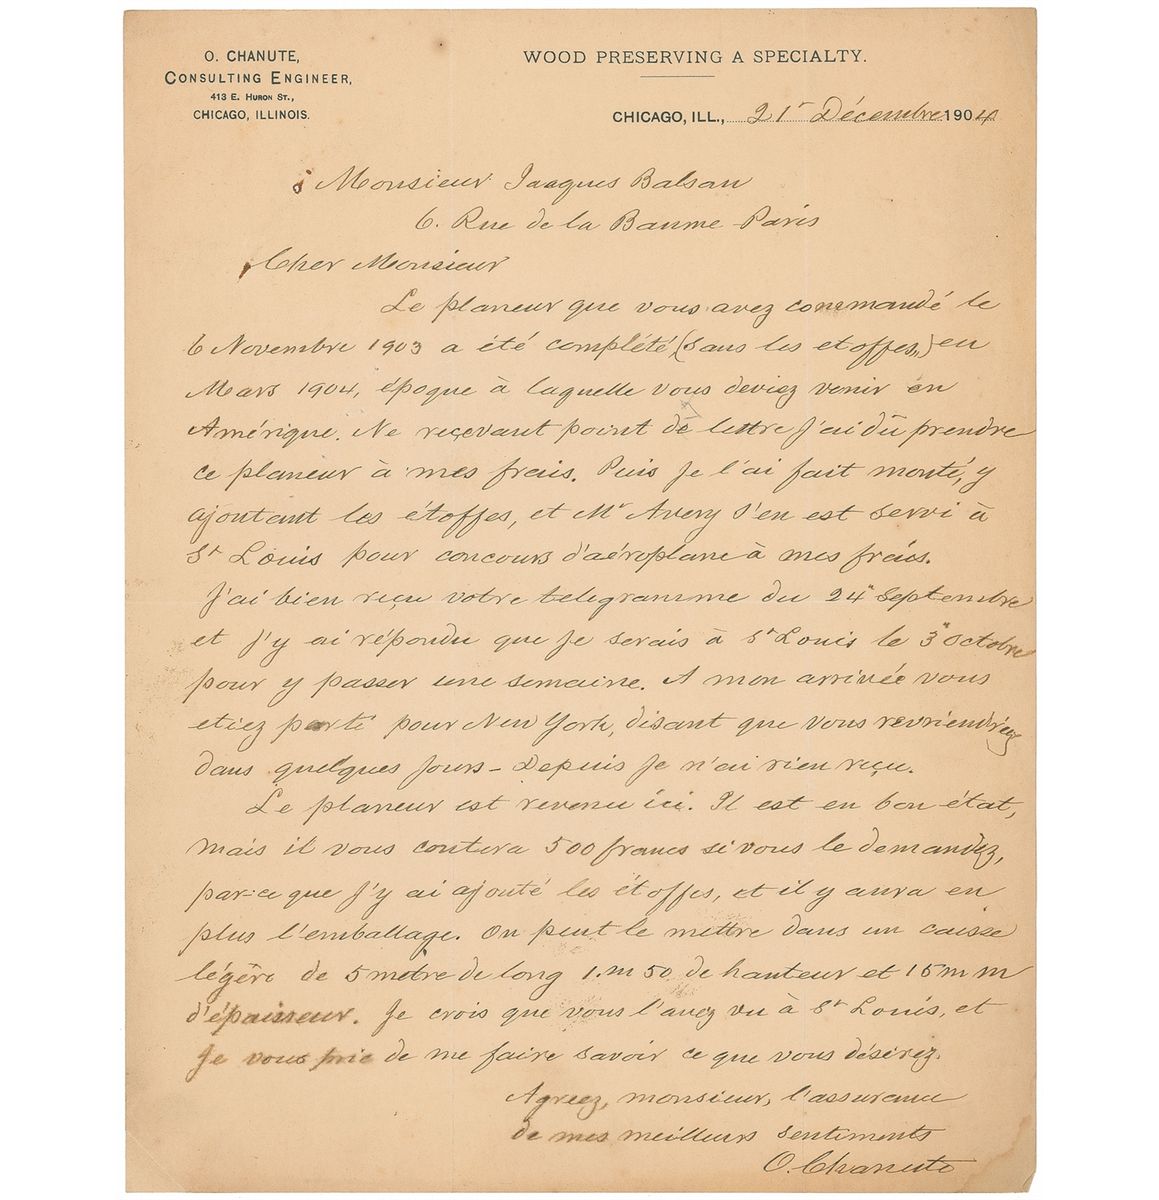 O. CHANUTE,
CONSULTING ENGINEER,
413 E. HURON ST.,
CHICAGO, ILLINOIS.
WOOD PRESERVING A SPECIALTY.
CHICAGO, ILL., 21r Décembre 1904
à Monsieur Jacques Balsan
6. Rue de la Baume Paris
Cher Monsieur
Le planeur que vous avez commandé le
6 Novembre 1903 a été complété (sans les etoffes,) en
Mars 1904, époque à laquelle vous deviez venir en
Amérique. Ne reçevant point de lettre j'ai dû prendre
ce planeur à mes frais. Puis je l'ai fait monté, y
ajoutant les étoffes, et Mr Avery s'en est servi à
St Louis pour concours d'aéroplane à mes frais.
J'ai bien reçu votre telegramme du 24" Septembre
et j'y ai répondu que je serais à St Louis le 3" Octobre
pour y passer une semaine. A mon arrivée vous
etiez parti pour New York, disant que vous revriendriez
dans quelques jours - Depuis je n'ai rien reçu.
Le planeur est revenu ici. Il est en bon état,
mais il vous coutera 500 francs si vous le demandez,
par-ce que j'y ai ajouté les étoffes, et il y aura en
plus l'emballage. On peut le mettre dans un caisse
légère de 5 metre de long 1.m 50 de hauteur et 15 mm
d'épaisseur. Je crois que vous l'avez vu à St Louis, et
je vous prie de me faire savoir ce que vous désirez.
Agreez, monsieur, l'assurance
de mes meilleurs sentiments
O. Chanute